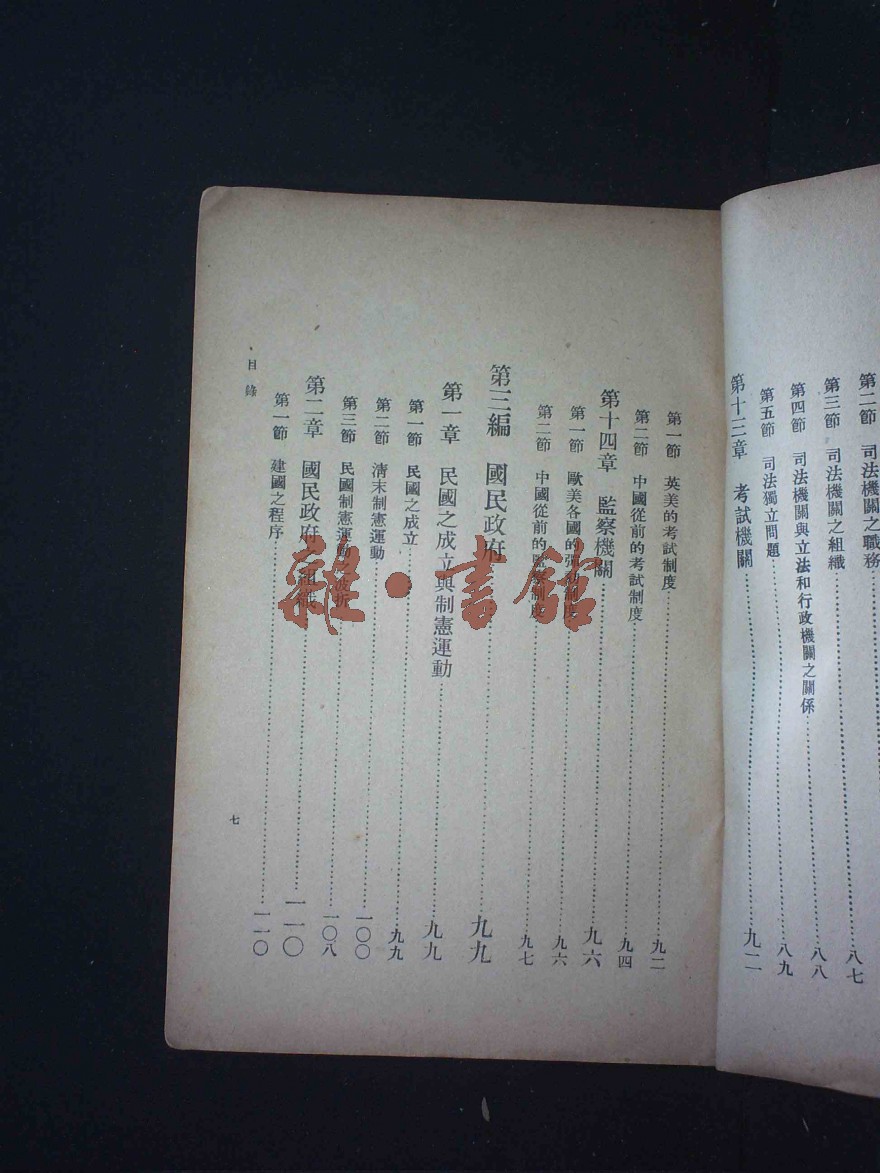 第二節 司法機關之職務……八七
第三節 司法機關之組織
第四節 司法機關與立法和行政機關之關係……八八
第五節 司法獨立問題……八九
第十三章 考試機關……九二
第一節 英美的考試制度……九二
第二節 中國從前的考試制度……九四
第十四章 監察機關……九六
第一節 歐美各國的彈劾制度……九六
第二節 中國從前的監察制度……九七
第三編 國民政府……九九
第一章 民國之成立與制憲運動……九九
第一節 民國之成立……九九
第二節 清末制憲運動……一〇〇
第三節 民國制憲運動之波折……一〇八
第二章 國民政府組織……一一〇
第一節 建國之程序……一一〇
目錄
七
雜·書館